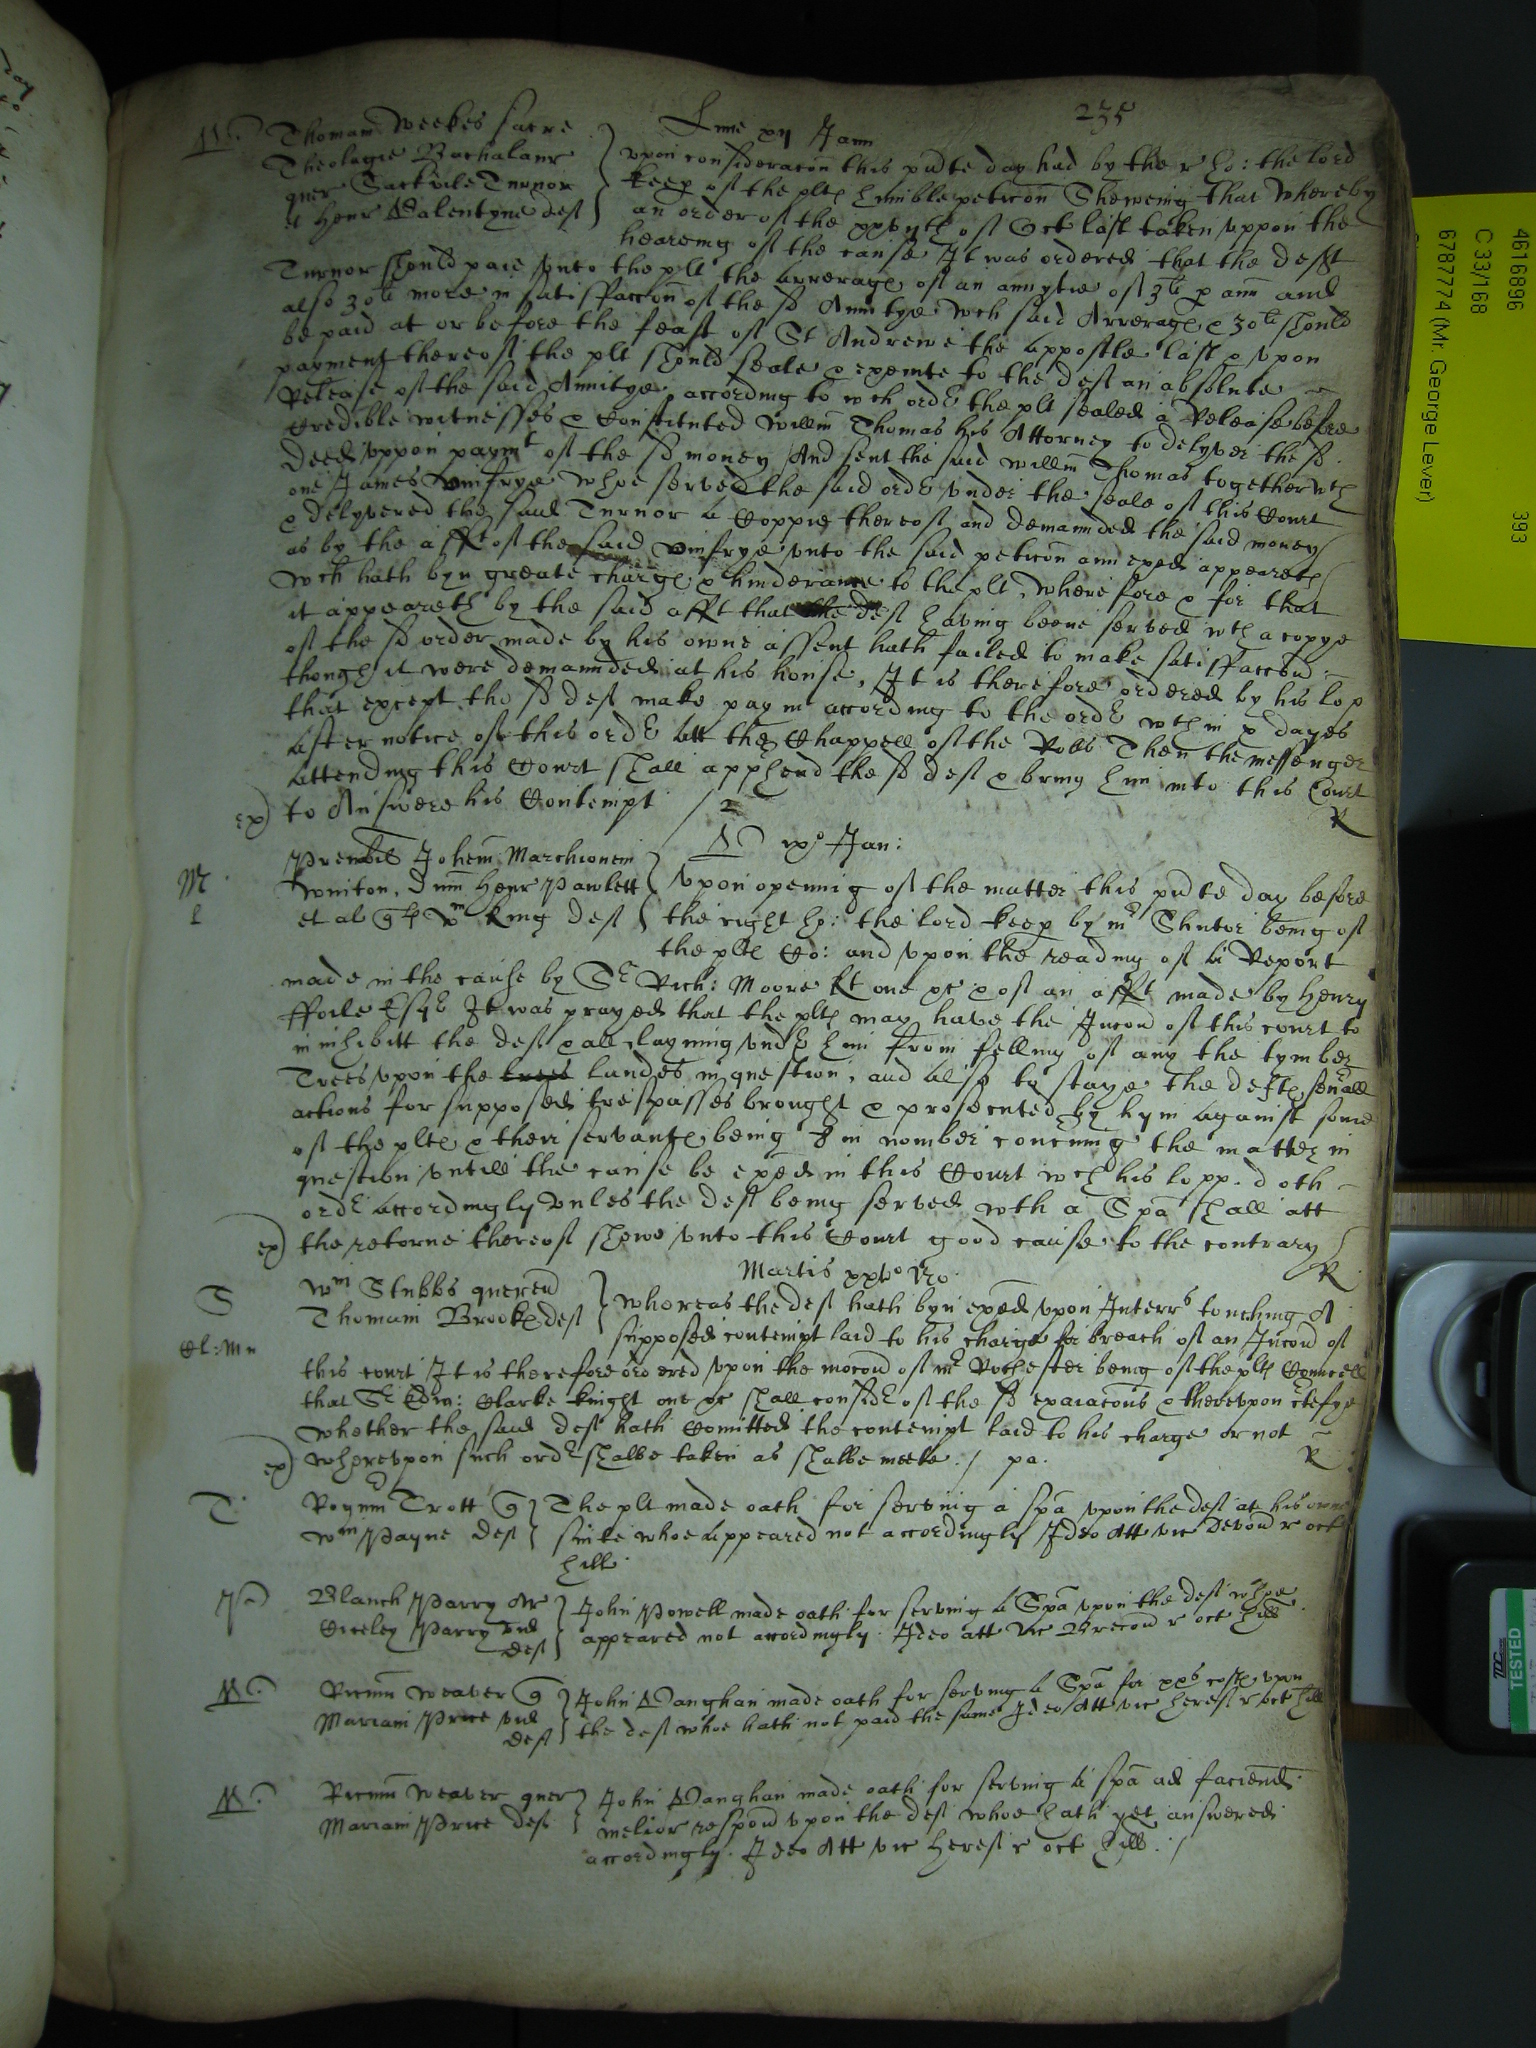 235
W. Thomam Weekes sacre
Theologie Bachalaur
quer Sackvile Turnor
et Henr Valentyne def
Lune xij Jann
Vpon consideracon this pnte day had by the r ho: the lord
keep of the plts humble peticon Shewing that whereby
an order of the xxvijth of Octo last taken vppon the
hearemg of the cause It was ordered that the deft
Turnor should paie vnto the plt the arrerages of an annytie of 3li p ann and
also 30li more in satisfaccon of the sd Annitye wch said Arrerages & 30li should
be paid at or before the feast of St Andrewe the appostle last & vpon
payment thereof the plt should seale & execute to the def an absolute
Release of the said Annitye, according to wch ordr the plt sealed a Release before
Credible witnesses & Constituted Willm Thomas his Attorney to delyver the sd
Deed vppon paymt of the sd money And sent the said Willm Thomas together wth
one James Vmfrye whoe served the said ordr vnder the seale of this Court
& delyvered the said Turnor a Coppie thereof and demannded the said money
as by the afft of the said Vmfrye vnto the said peticon annexed appeareth
Wch hath byn greate charge & hinderance to the plt, Wherefore & for that
it appeareth by the said afft that the def having beene served wth a copye
of the sd order made by his owne assent hath failed to make satisfaccon
though it were demannded at his house, It is therefore ordered by his lop
that except the sd def make paym according to the ordr wthin x dayes
after notice of this ordr att the Chappell of the Rolls Then the messenger
attending this Court shall apphend the sd def & bring him into this Court
ex) to Answere his Contempt / 2
R
M
L
Prenobis Johem Marchionem
Winton, Dnm Henr Pawlett
et al qts Wm King def
xo Jan:
Vpon opening of the matter this pnte day before
the right ho: the lord keep by mr Shuter being of
the plts Co: and vpon the reading of a Report
made in the cause by Sr Rich: Moore kt one &c & of an afft made by Henry
ffoile Esqr It was prayed that the plts may have the Jnccon of this court to
inhibitt the def & all clayming vndr him from felling of any the tymber
Trees vpon the trees landes in question, and also to staye the defts seuall
actions for supposed trespasses brought & prosecuted by hym against some
of the plts & their servants being 8 in nomber concerning the matter in
question vntill the cause be exed in this Court wch his lopp. doth
ordr accordingly vnles the def being served wth a Spa shall att
ex) the retorne thereof shewe vnto this Court good cause to the contrary
R
Martis
S
Wm Stubbs querend
Thomam Brooke def
Cl: Mn
Whereas the def hath byn exed vpon Interrs touching A
supposed contempt laid to his charge for breach of an Jnccon of
this court It is therefore ordered vpon the mocon of mr Rochester being of the plts Councell
that Sr Edw: Clarke knight one &c shall consider of the sd exaiacons & therevpon ctefye
whether the said def hath Comitted the contempt laid to his charge or not
ex) wherevpon such ordr shalbe taken as shalbe meete. / pa.
R
T Trott q
Wm Payne def
The plt made oath for serving a spa vpon the def at his owne
suite whoe appeared not accordingly Ideo Att vic Devon r oct
hill
P Blanch Parry
Ciceley Parry vid
def
John Powell made oath for serving a Spa vpon the def whoe
appeared not accordingly. Ideo att vic Brecon r oct hill
W. Ricum Weaver q
Mariam Price vid
def
John Vaughan made oath for serving a Spa for xxs costs vpon
the def whoe hath not paid the same Ideo Att vic heref r oct hill
W. Ricum Weaver quer
Mariam Price def
John Vaughan made oath for serving a spa ad faciend
melior respon vpon the def whoe hath yet answered
accordingly. Ideo Att vic heref r oct hill. /
4616896 393
C 33/168
6787774 (Mr. George Lever)
TESTED